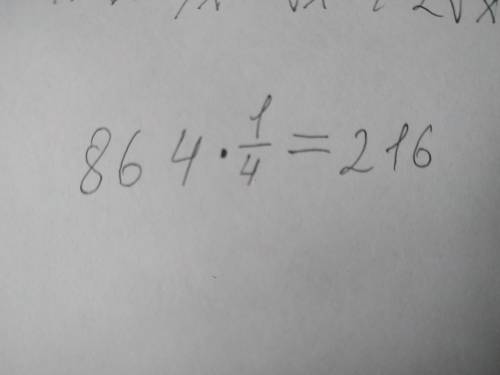 864 · 1/4 = 216